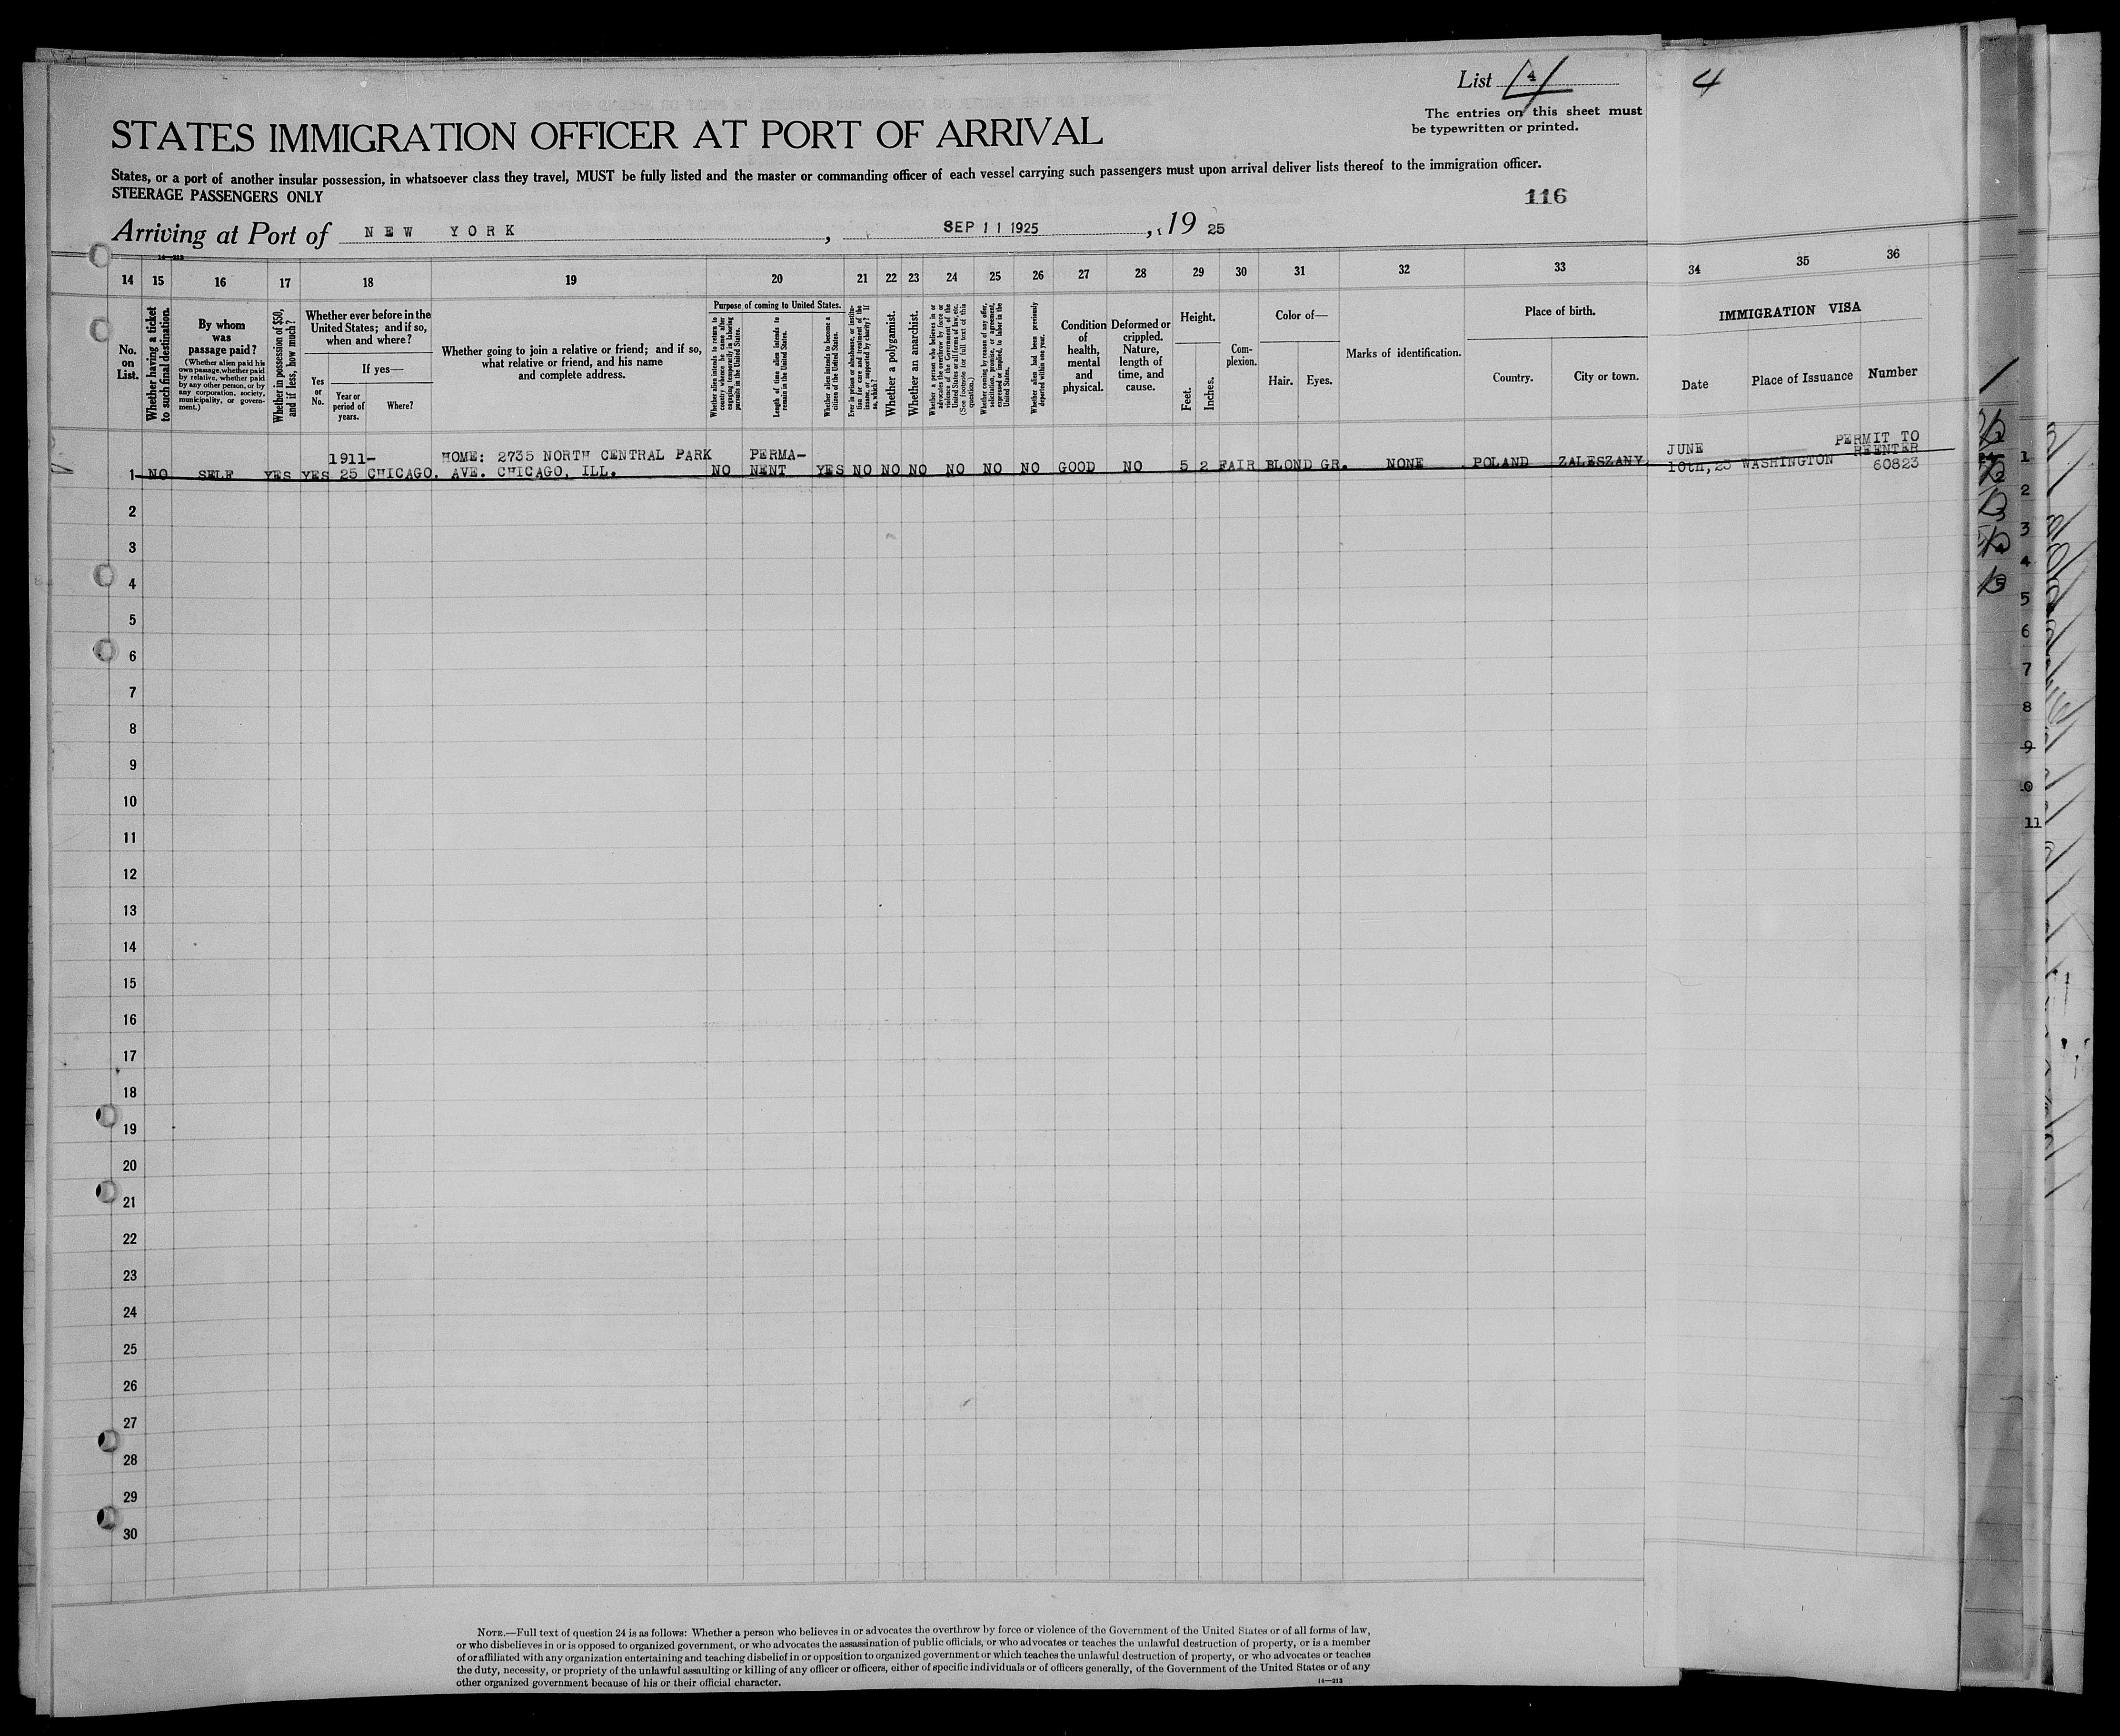 List 4
4
The entries on this sheet must
be typewritten or printed.
STATES IMMIGRATION OFFICER AT PORT OF ARRIVAL
States, or a port of another insular possession, in whatsoever class they travel, MUST be fully listed and the master or commanding officer of each vessel carrying such passengers must upon arrival deliver lists thereof to the immigration officer.
STEERAGE PASSENGERS ONLY
116
Arriving at Port of NEW YORK, SEP 11 1925, 19 25
14—212
14 15 16 17 18 19 20 21 22 23 24 25 26 27 28 29 30 31 32 33 34 35 36
No. on List.
Whether having a ticket to such final destination.
By whom was passage paid?
(Whether alien paid his own passage, whether paid by relative, whether paid by any other person, or by any corporation, society, municipality, or government.)
Whether in possession of $50, and if less, how much?
Whether ever before in the United States; and if so, when and where?
Yes or No.
If yes—
Year or period of years.
Where?
Whether going to join a relative or friend; and if so, what relative or friend, and his name and complete address.
Purpose of coming to United States.
Whether alien intends to return to country whence he came after engaging temporarily in laboring pursuits in the United States.
Length of time alien intends to remain in the United States.
Whether alien intends to become a citizen of the United States.
Ever in prison or almshouse, or institution for care and treatment of the insane, or supported by charity? If so, which?
Whether a polygamist.
Whether an anarchist.
Whether a person who believes in or advocates the overthrow by force or violence of the Government of the United States or all forms of law, etc. (See footnote for full text of this question.)
Whether coming by reason of any offer, solicitation, promise, or agreement, expressed or implied, to labor in the United States.
Whether alien had been previously deported within one year.
Condition of health, mental and physical.
Deformed or crippled. Nature, length of time, and cause.
Height.
Feet. Inches.
Complexion.
Color of—
Hair. Eyes.
Marks of identification.
Place of birth.
Country. City or town.
IMMIGRATION VISA
Date Place of Issuance Number
1911- HOME: 2735 NORTH CENTRAL PARK PERMA- JUNE PERMIT TO REENTER
1 NO SELF YES YES 25 CHICAGO. AVE. CHICAGO, ILL. NO NENT YES NO NO NO NO NO NO GOOD NO 5 2 FAIR BLOND GR. NONE POLAND ZALESZANY 10th, 25 WASHINGTON 60823
2
3
4
5
6
7
8
9
10
11
12
13
14
15
16
17
18
19
20
21
22
23
24
25
26
27
28
29
30
1
2
3
4
5
6
7
8
9
11
NOTE.—Full text of question 24 is as follows: Whether a person who believes in or advocates the overthrow by force or violence of the Government of the United States or of all forms of law,
or who disbelieves in or is opposed to organized government, or who advocates the assassination of public officials, or who advocates or teaches the unlawful destruction of property, or is a member
of or affiliated with any organization entertaining and teaching disbelief in or opposition to organized government or which teaches the unlawful destruction of property, or who advocates or teaches
the duty, necessity, or propriety of the unlawful assaulting or killing of any officer or officers, either of specific individuals or of officers generally, of the Government of the United States or of any
other organized government because of his or their official character.
14—212